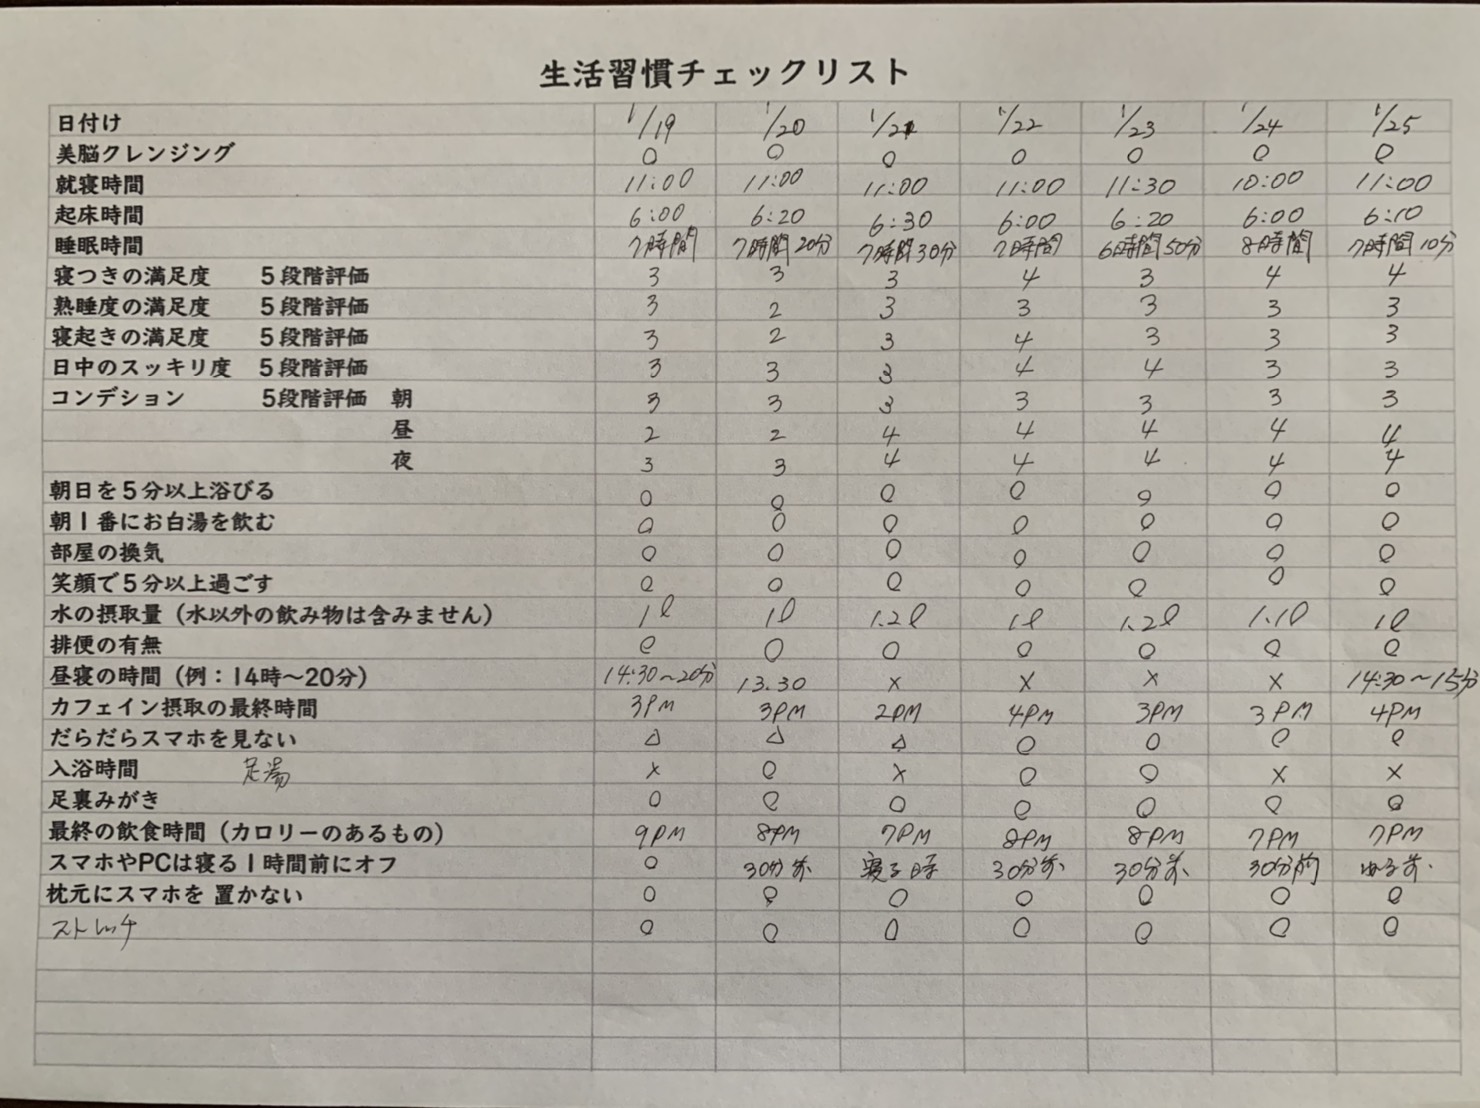 生活習慣チェックリスト
日付け 1/19 1/20 1/21 1/22 1/23 1/24 1/25
美脳クレンジング ○ ○ ○ ○ ○ ○ ○
就寝時間 11:00 11:00 11:00 11:00 11:30 10:00 11:00
起床時間 6:00 6:20 6:30 6:00 6:20 6:00 6:10
睡眠時間 7時間 7時間20分 7時間30分 7時間 6時間50分 8時間 7時間10分
寝つきの満足度 5段階評価 3 3 3 4 3 4 4
熟睡度の満足度 5段階評価 3 2 3 3 3 3 3
寝起きの満足度 5段階評価 3 2 3 4 3 3 3
日中のスッキリ度 5段階評価 3 3 3 4 4 3 3
コンデション 5段階評価 朝 3 3 3 3 3 3 3
昼 2 2 4 4 4 4 4
夜 3 3 4 4 4 4 4
朝日を5分以上浴びる ○ ○ ○ ○ ○ ○ ○
朝1番にお白湯を飲む ○ ○ ○ ○ ○ ○ ○
部屋の換気 ○ ○ ○ ○ ○ ○ ○
笑顔で5分以上過ごす ○ ○ ○ ○ ○ ○ ○
水の摂取量（水以外の飲み物は含みません） 1ℓ 1ℓ 1.2ℓ 1ℓ 1.2ℓ 1.1ℓ 1ℓ
排便の有無 ○ ○ ○ ○ ○ ○ ○
昼寝の時間（例：14時〜20分） 14:30〜20分 13.30 × × × × 14:30〜15分
カフェイン摂取の最終時間 3PM 3PM 2PM 4PM 3PM 3PM 4PM
だらだらスマホを見ない △ △ △ ○ ○ ○ ○
入浴時間 足湯 × ○ × ○ ○ × ×
足裏みがき ○ ○ ○ ○ ○ ○ ○
最終の飲食時間（カロリーのあるもの） 9PM 8PM 7PM 8PM 8PM 7PM 7PM
スマホやPCは寝る1時間前にオフ ○ 30分前 寝る時 30分前 30分前 30分前 ねる前
枕元にスマホを 置かない ○ ○ ○ ○ ○ ○ ○
ストレッチ ○ ○ ○ ○ ○ ○ ○